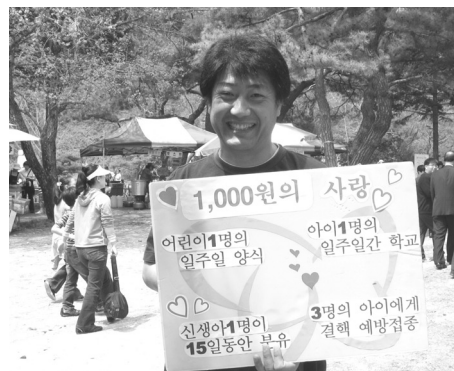 1,000원의 사랑
어린이1명의
일주일 양식
아이1명의
일주일간 학교
신생아1명이
15일동안 분유
3명의 아이에게
결핵 예방접종